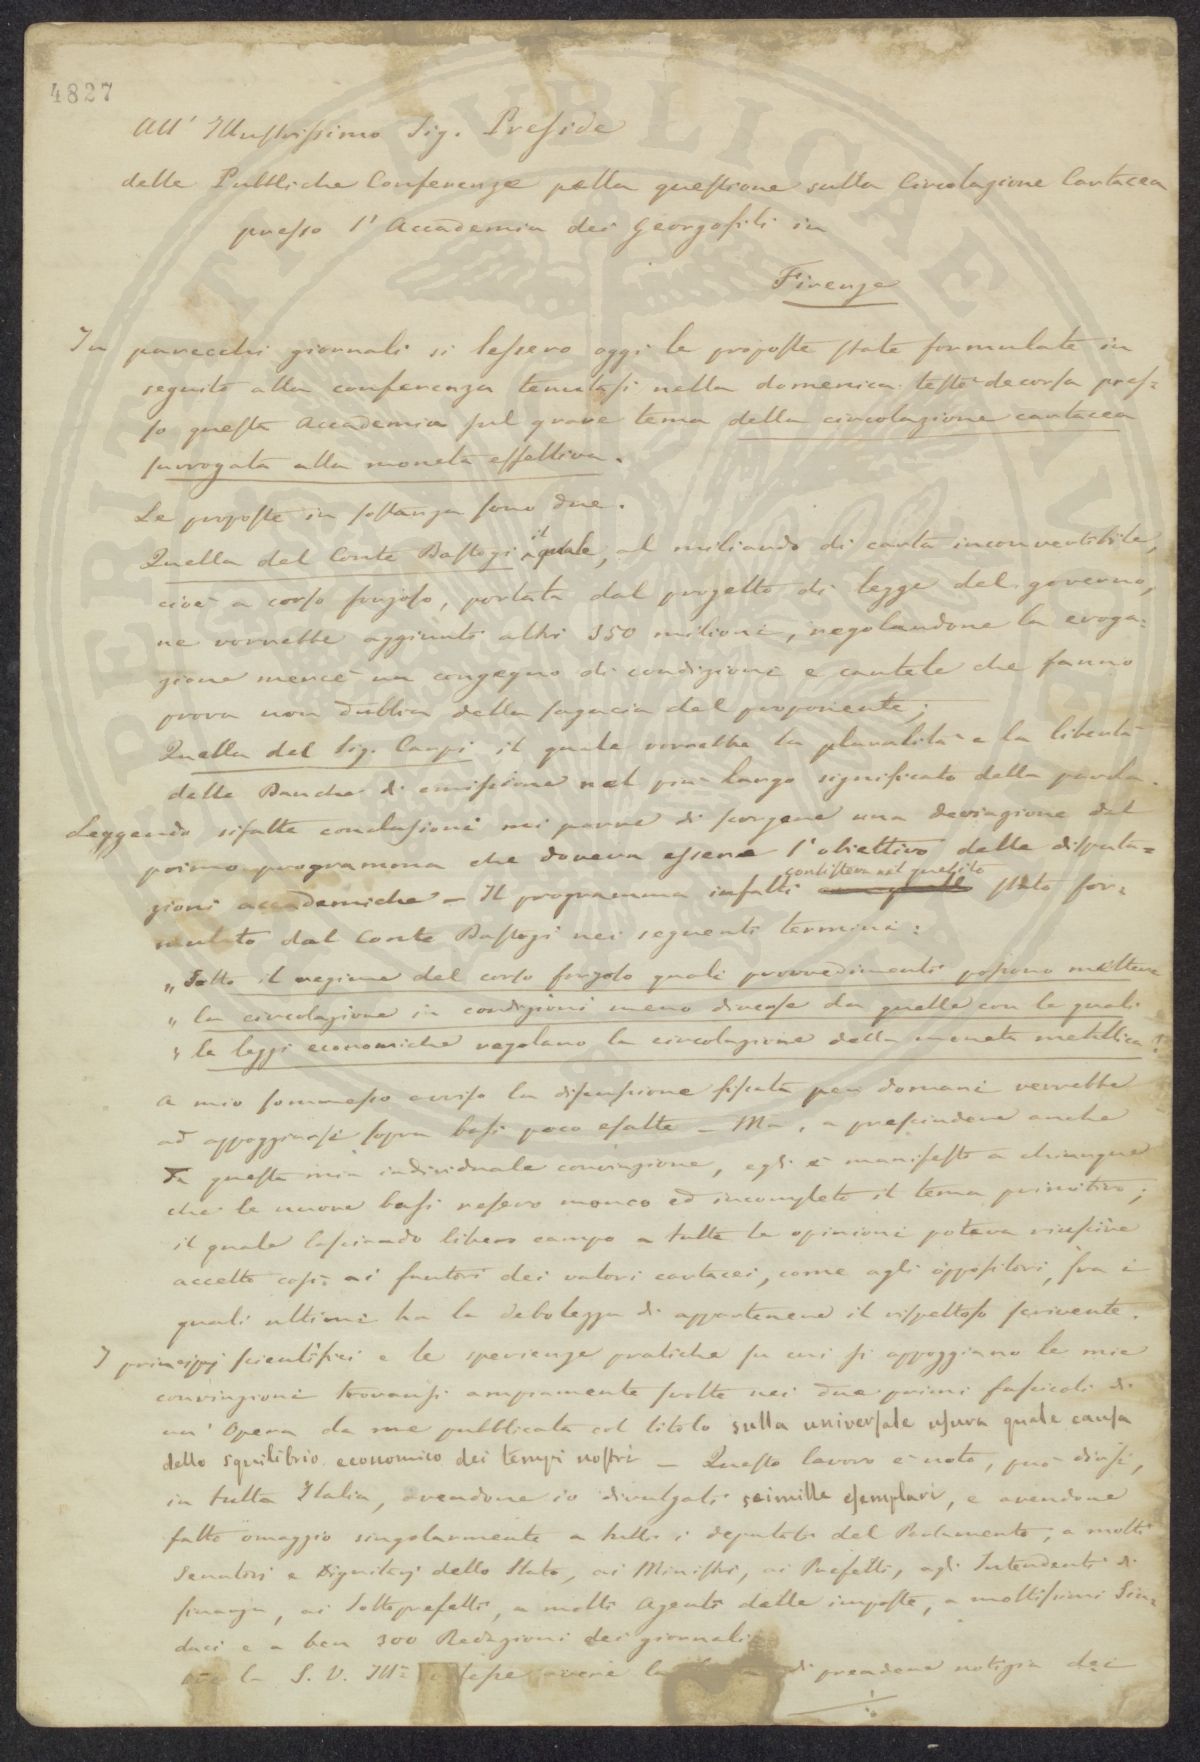 4827
All' Illustrissimo Sig. Preside
delle Pubbliche Conferenze pella questione sulla Circolazione Cartacea
presso l' Accademia dei Georgofili in
Firenze
In parecchi giornali si lessero oggi le proposte state formulate in
seguito alla conferenza tenutasi nella domenica testè decorsa pres=
so questa Accademia sul grave tema della circolazione cartacea
surrogata alla moneta effettiva.
Le proposte in sostanza sono due.
Quella del Conte Bastogi il quale, al miliardo di carta inconvertibile,
cioè a corso forzoso, portata dal progetto di legge del governo,
ne vorrebbe aggiunti altri 350 milioni, regolandone la eroga=
zione mercè un congegno di condizioni e cautele che fanno
prova non dubbia della sagacia del proponente;
Quella del Sig. Carpi il quale vorrebbe la pluralità e la libertà
delle Banche di emissione nel più largo significato della parola.
Leggendo sifatte conclusioni mi parve di scorgere una deviazione dal
primo programma che doveva essere l'obiettivo delle disputa=
zioni accademiche – Il programma infatti consisteva nel quesito stato for=
mulato dal Conte Bastogi nei seguenti termini:
„ Sotto il regime del corso forzoso quali provvedimenti possono mettere
„ la circolazione in condizioni meno diverse da quelle con le quali
„ le leggi economiche regolano la circolazione della moneta metallica?
A mio sommesso avviso la discussione fissata per domani verrebbe
ad appoggiarsi sopra basi poco esatte – Ma, a prescindere anche
da questa mia individuale convinzione, egli è manifesto a chiunque
che le nuove basi resero monco ed incompleto il tema primitivo;
il quale lasciando libero campo a tutte le opinioni poteva riuscire
accetto così ai fautori dei valori cartacei, come agli oppositori, fra i
quali ultimi ha la debolezza di appartenere il rispettoso scrivente.
I principj scientifici e le sperienze pratiche su cui si appoggiano le mie
convinzioni trovansi ampiamente svolte nei due primi fascicoli di
un' Opera da me pubblicata col titolo sulla universale usura quale causa
dello squilibrio economico dei tempi nostri – Questo lavoro è noto, può dirsi,
in tutta Italia, avendone io divulgati seimille esemplari, e avendone
fatto omaggio singolarmente a tutti i deputati del Parlamento, a molti
Senatori e Dignitarj dello Stato, ai Ministri, ai Prefetti, agli Intendenti di
finanza, ai Sottoprefetti, a molti Agenti delle imposte, a moltissimi Sin=
daci e a ben 300 Redazioni dei giornali.
la S. V. Ill.ª avere la di prendere notizia dei